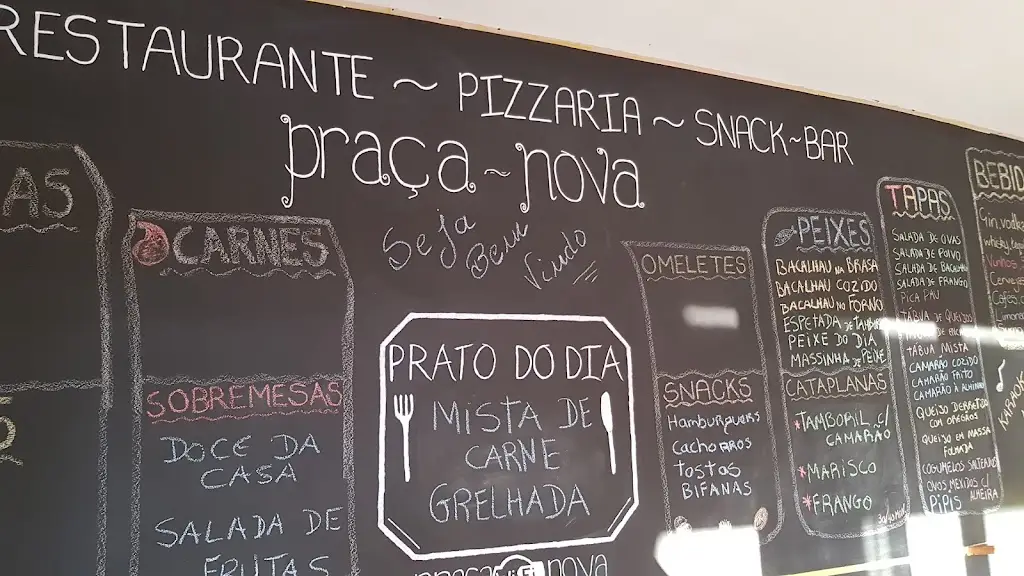 RESTAURANTE ~ PIZZARIA ~ SNACK~BAR
praça~nova
Seja
Bem
Vindo
AS
CARNES
SOBREMESAS
DOCE DA
CASA
SALADA DE
FRUTAS
PRATO DO DIA
MISTA DE
CARNE
GRELHADA
praça nova
OMELETES
SNACKS
Hamburguers
Cachorros
Tostas
BIFANAS
PEIXES
BACALHAU NA BRASA
BACALHAU COZIDO
BACALHAU NO FORNO
ESPETADA DE
PEIXE DO DIA
MASSINHA DE PEIXE
CATAPLANAS
*TAMBORIL C/
CAMARÃO
*MARISCO
*FRANGO
TAPAS
SALADA DE OVAS
SALADA DE POLVO
SALADA DE BACALHAU
SALADA DE FRANGO
PICA PAU
TÁBUA DE QUEIJOS
TÁBUA MISTA
CAMARÃO COZIDO
CAMARÃO FRITO
CAMARÃO À ALHINHO
QUEIJO DERRETIDO
COM OREGÃOS
QUEIJO EM MASSA
FOLHADA
COGUMELOS SALTEADOS
OVOS MEXIDOS C/
ALHEIRA
PIPIS
BEBID
Gin, vodka
whisky,
Vinhos
Cerveja
Cafés,
KARAOK